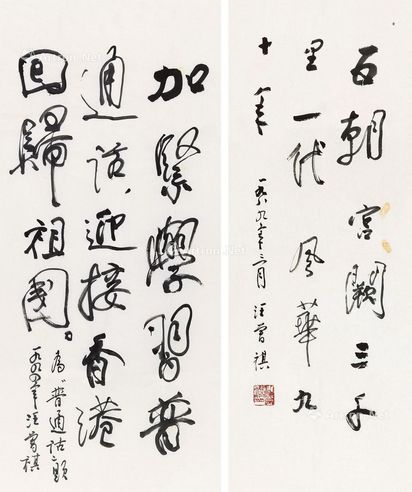 五朝宫闕三千
里一代风華九
十年
一九八九年二月 汪曾祺
加緊學習普
通话，迎接香港
回歸祖國。
为“普通话”题
一九九四年 汪曾祺